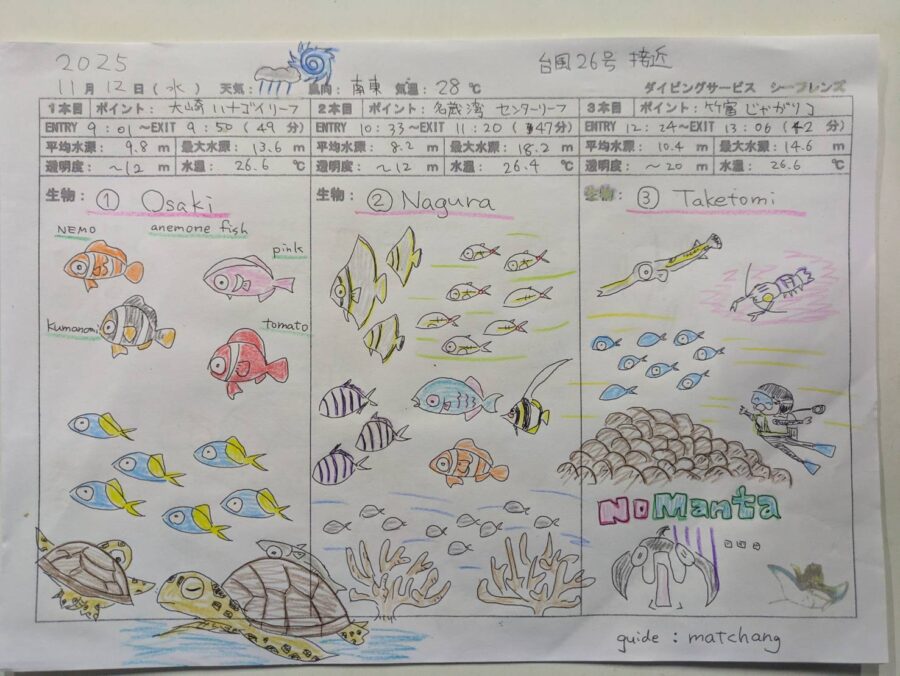 2025
台風26号 接近
11月 12日 (水) 天気: 風向: 南東 気温: 28 ℃ ダイビングサービス シーフレンズ
1本目 ポイント: 大崎 ハナゴイリーフ
ENTRY 9:01~EXIT 9:50 (49 分)
平均水深: 9.8 m 最大水深: 13.6 m
透明度: ~12 m 水温: 26.6 ℃
生物: ① Osaki
NEMO
anemone fish
pink
Kumanomi
tomato
2本目 ポイント: 名蔵湾 センターリーフ
ENTRY 10:33~EXIT 11:20 (47分)
平均水深: 8.2 m 最大水深: 18.2 m
透明度: ~12 m 水温: 26.4 ℃
生物: ② Nagura
3本目 ポイント: 竹富 じゃがりコ
ENTRY 12:24~EXIT 13:06 (42 分)
平均水深: 10.4 m 最大水深: 14.6 m
透明度: ~20 m 水温: 26.6 ℃
生物: ③ Taketomi
No Manta
guide : matchang